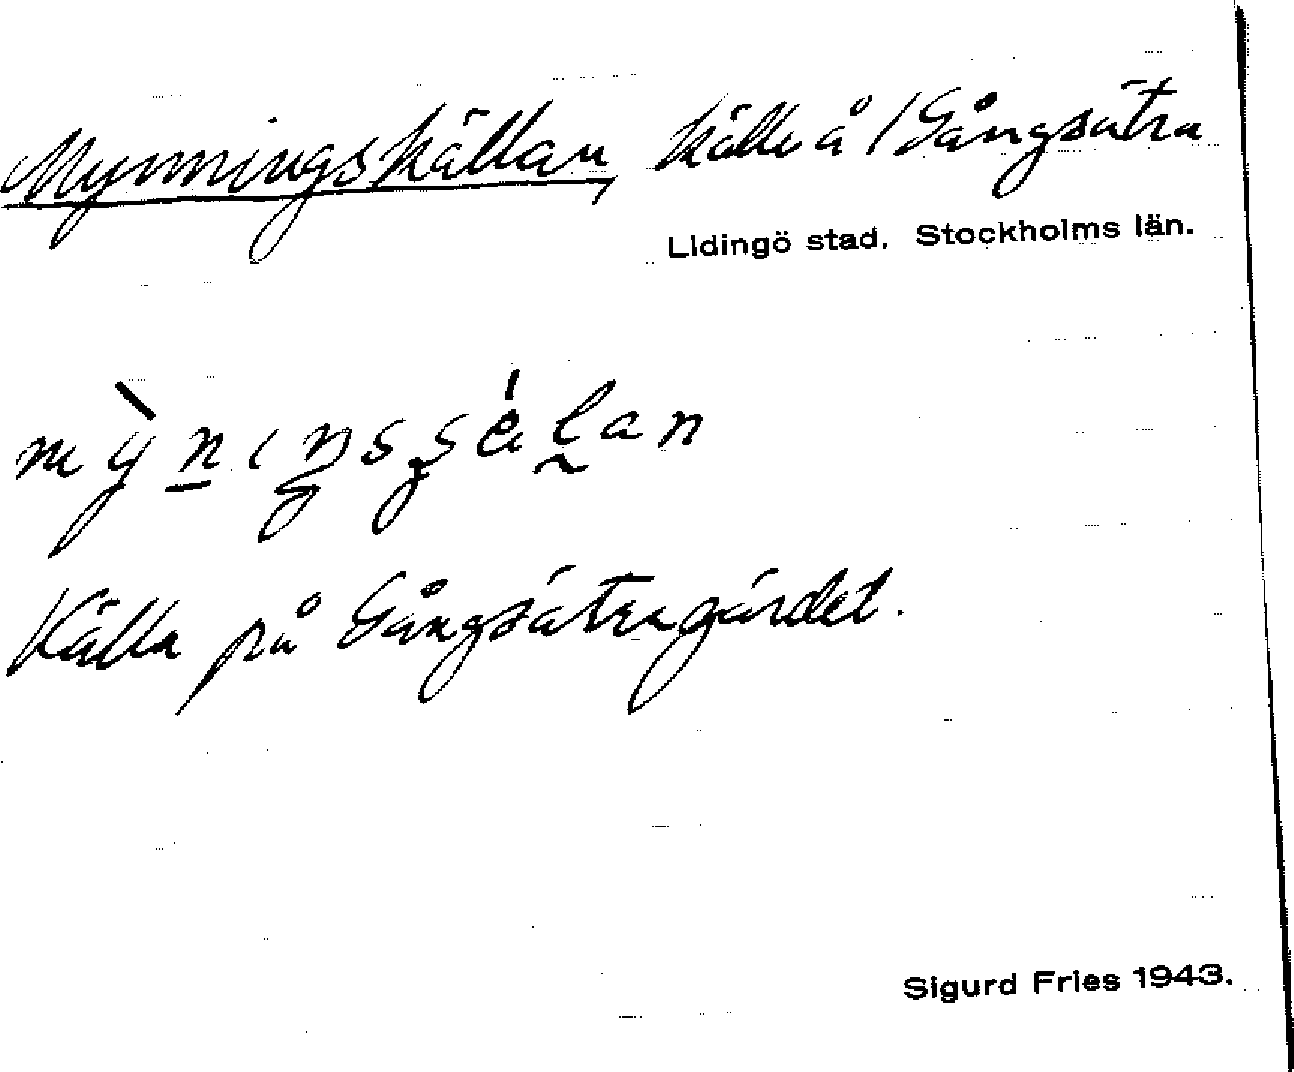 Mynningskällan, källa å /Gångsätra
Lidingö stad. Stockholms län.
Källa på Gångsätragärdet.
Sigurd Fries 1943.